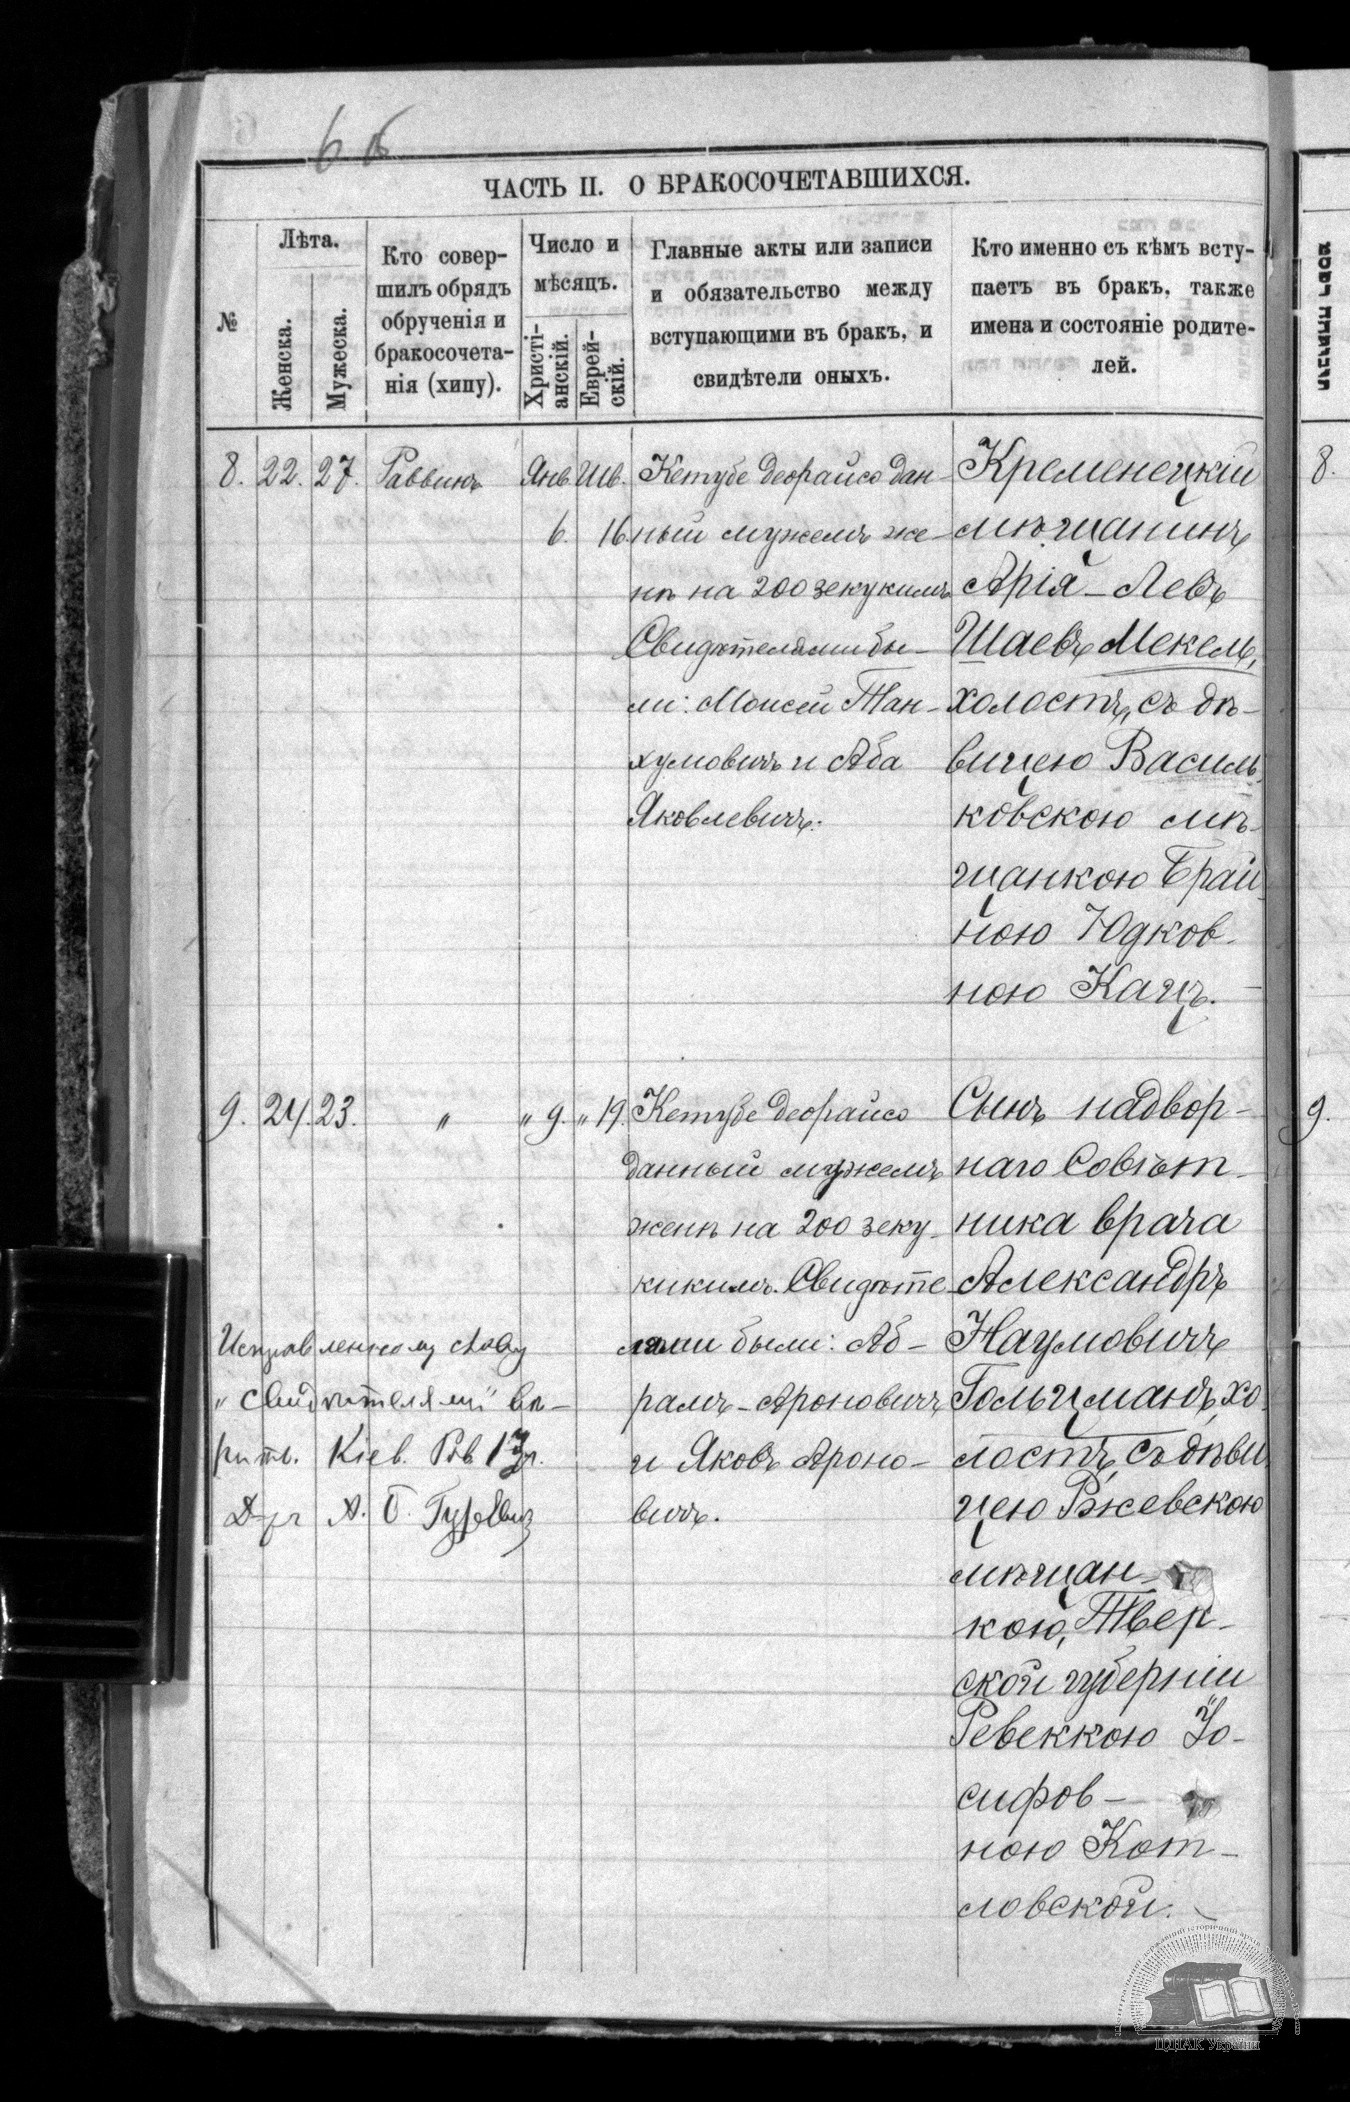 6 б
ЧАСТЬ II. О БРАКОСОЧЕТАВШИХСЯ.
№
Лѣта.
Женска.
Мужеска.
Кто совер-
шилъ обрядъ
обрученія и
бракосочета-
нія (хипу).
Число и
мѣсяцъ.
Христі-
анскій.
Еврей-
скій.
Главные акты или записи
и обязательство между
вступающими въ бракъ, и
свидѣтели оныхъ.
Кто именно съ кѣмъ всту-
паетъ въ бракъ, также
имена и состояніе родите-
лей.
8. 22. 27. Раввинъ Янв. Шв.
6. 16.
Кетубе деорайсо дан-
ный мужемъ же-
нѣ на 200 зекукимъ
Свидѣтелями бы-
ли: Моисей Тан-
хумовичъ и Аба
Яковлевичъ.
Кременецкій
мѣщанинъ
Арія-Левъ
Шаевъ Мекель,
холостъ, съ дѣ-
вицею Василь-
ковскою мѣ-
щанкою Брай-
ною Юдков-
ною Кацъ.
8.
9. 24. 23. „ „ 9. „ 19.
Кетубе деорайсо
данный мужемъ
женѣ на 200 зеку-
кикимъ. Свидѣте-
лями были: Аб-
рамъ-Ароновичъ
и Яковъ Ароно-
вичъ.
Сынъ надвор-
наго Совѣт-
ника врача
Александръ
Наумовичъ
Гольцманъ, хо-
лостъ, съ дѣви-
цею Ржевскою
мѣщан-
кою, Твер-
ской губерніи
Ревеккою Іо-
сифов-
ною Кот-
ловской.
9.
Исправленному слову
„свидѣтелями" вѣ-
рить. Кіев. Рав
А. Б. Гуревич
ЦДІАК України